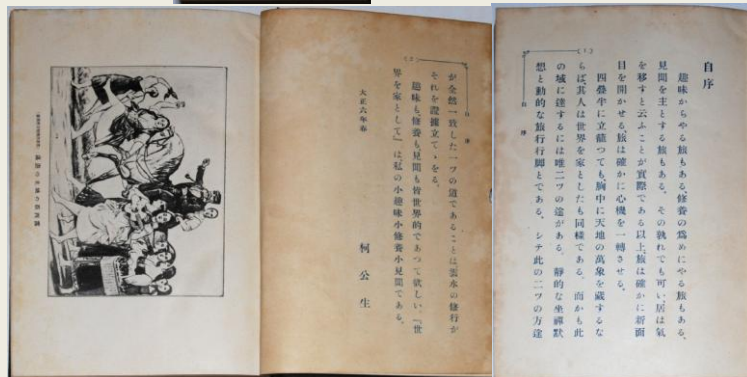 自序
趣味からやる旅もある、修養の爲めにやる旅もある、
見聞を主とする旅もある。その孰れでも可い、居は氣
を移すと云ふことが實際である以上旅は確かに新面
目を開かせる、旅は確かに心機を一轉させる。
四疊半に立籠つても、胸中に天地の萬象を藏するな
らば、其人は世界を家としたも同樣である。而かも此
の域に達するには唯二ツの途がある。靜的な坐禪默
想と動的な旅行行脚とである。シテ此の二ツの方途
(1)
自序
(2)
自序
が全然一致した一ツの道であることは雲水の修行が
それを證據立てゝをる。
趣味も、修養も、見聞も皆世界的であつて欲しい。『世
界を家として』は私の小趣味小修養小見聞である。
大正六年春
柯公生